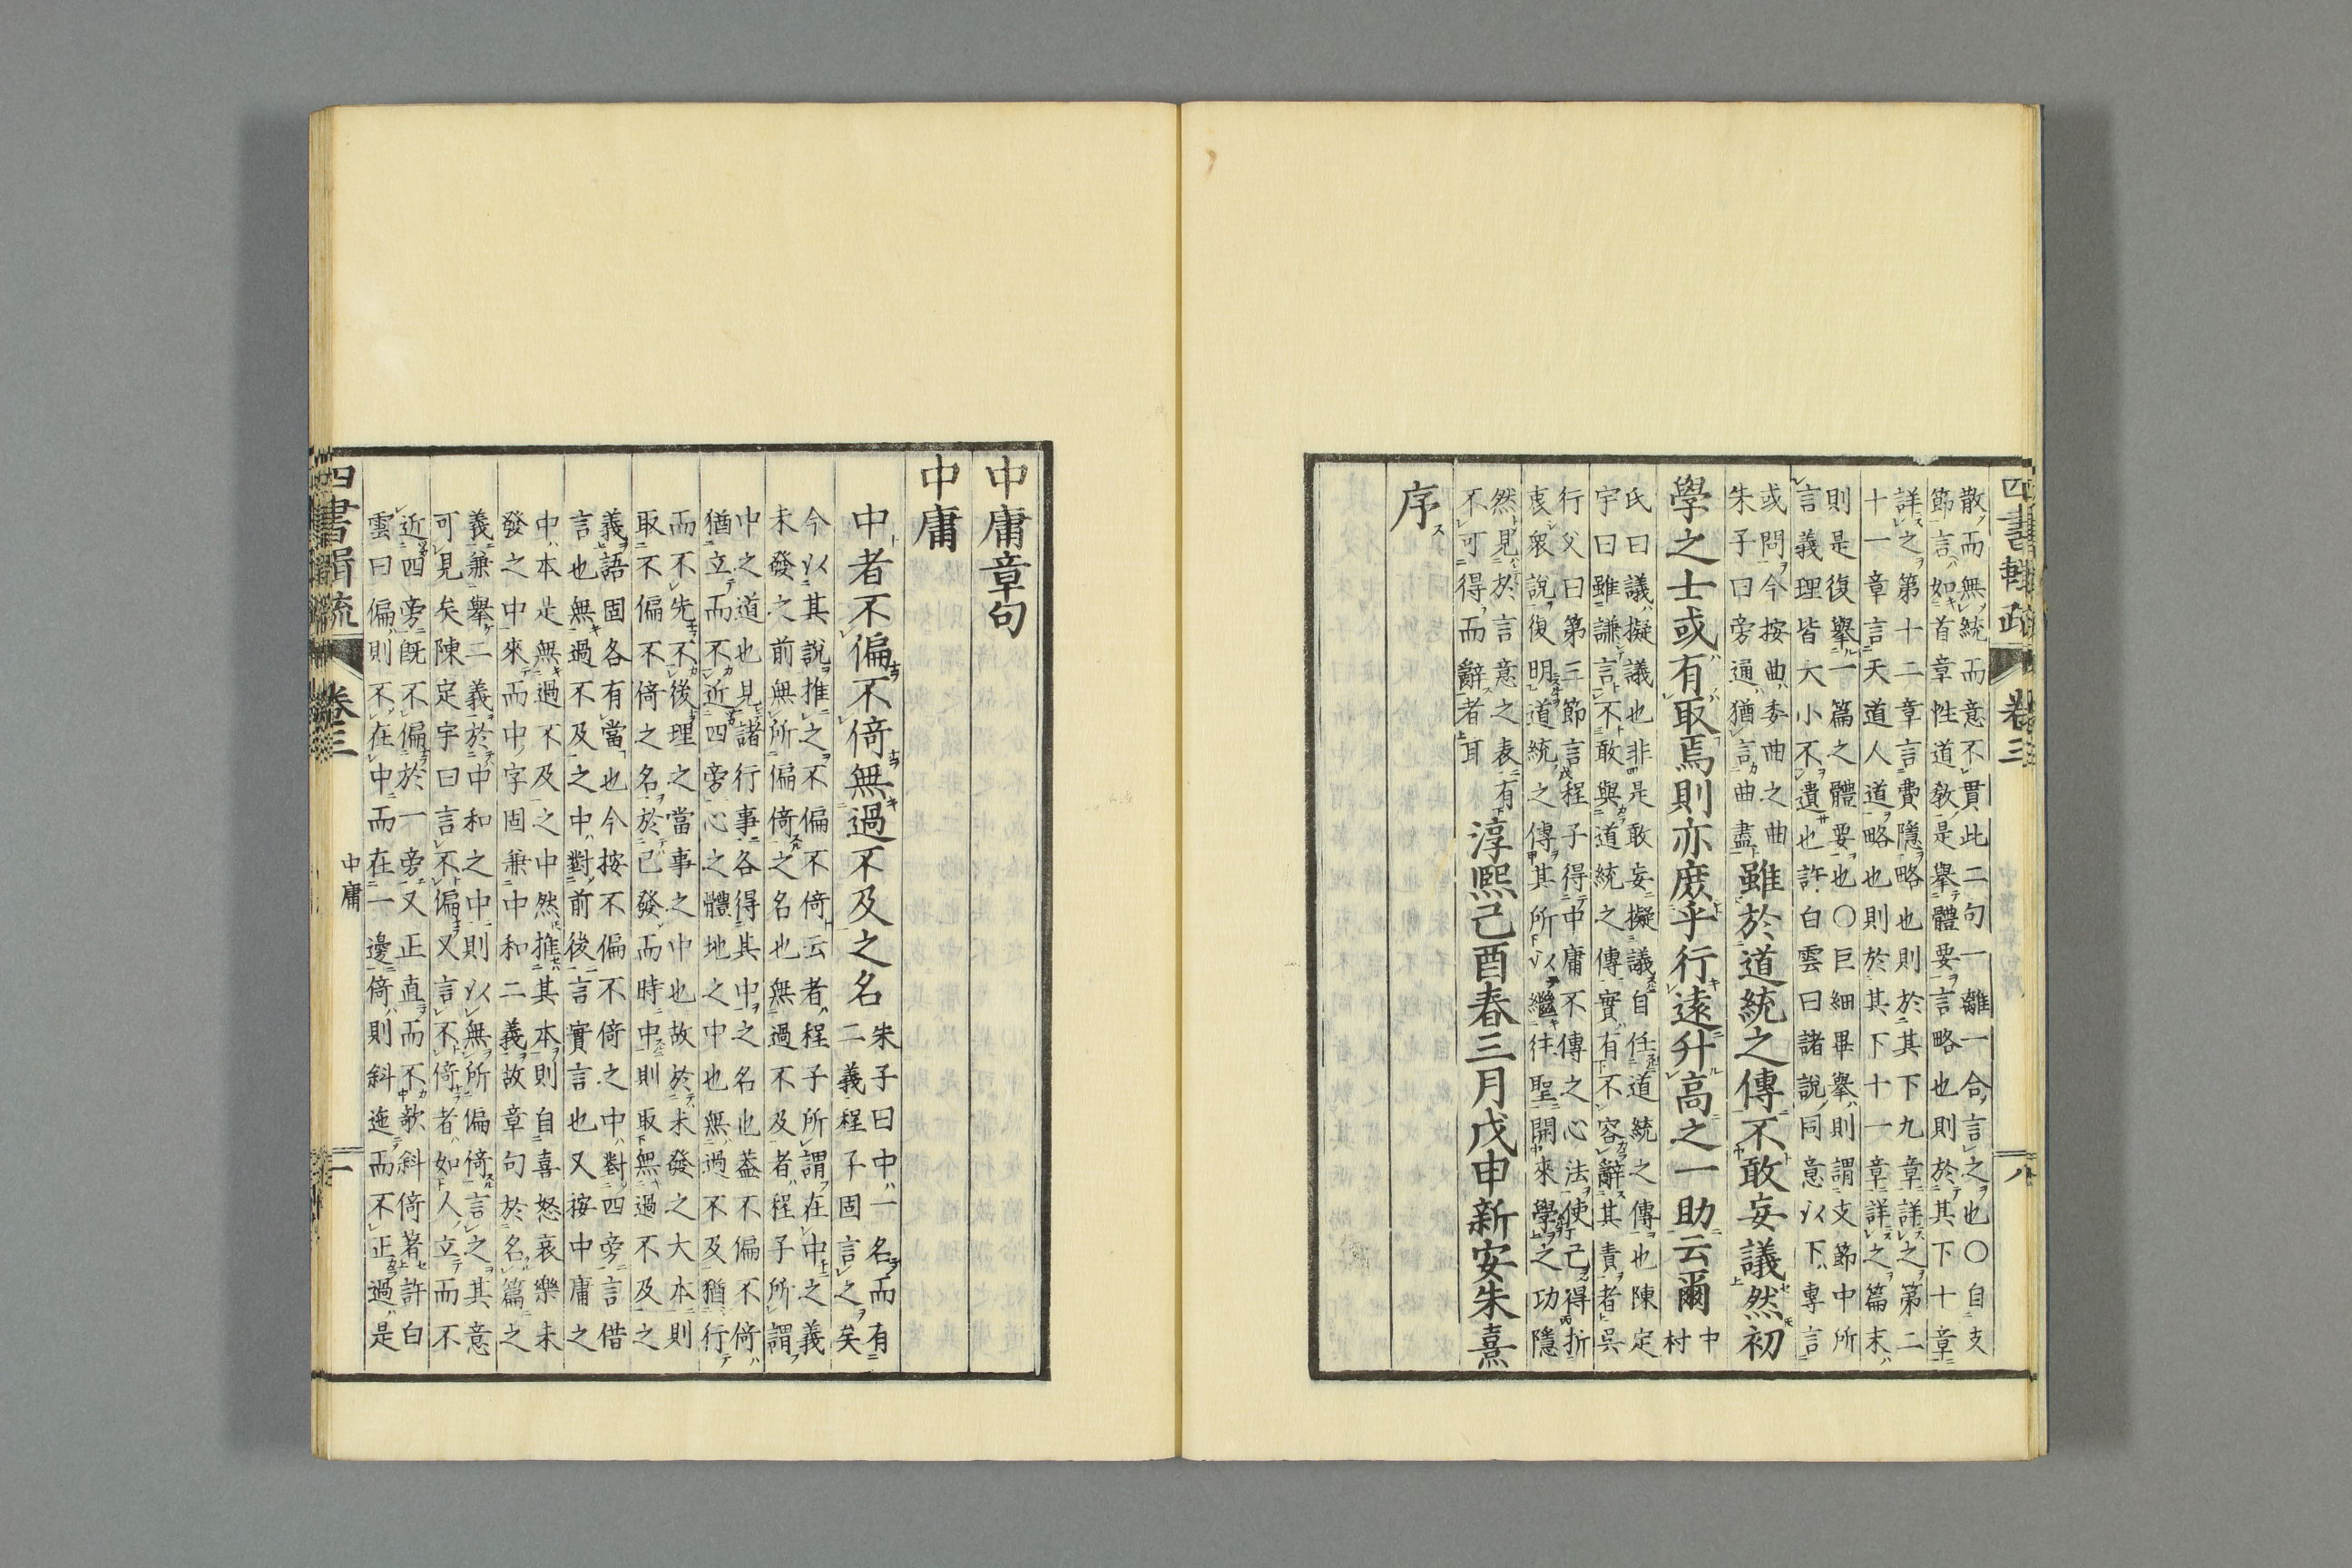 四書輯疏 卷三 八
散而無統而意不貫此二句一離一合言之也〇自支
節言如首章性道敎是擧體要言略也則於其下十章
詳之第十二章言費隱略也則於其下九章詳之第二
十一章言天道人道略也則於其下十一章詳之篇末
則是復擧一篇之體要也〇巨細畢擧則謂支節中所
言義理皆大小不遺也許白雲曰諸說同意以下專言
或問今按曲委曲之曲
朱子曰旁通猶言曲盡
雖於道統之傳不敢妄議然初
學之士或有取焉則亦庶乎行遠升高之一助云爾
中
村
氏曰議擬議也非是敢妄擬議自任道統之傳也陳定
宇曰雖謙言不敢與道統之傳實有不容辭其責者吳
行父曰第三節言程子得中庸不傳之心法使己得折
衷衆說復明道統之傳其所以繼往聖開來學之功隱
然見於言意之表有
不可得而辭者耳
淳熙己酉春三月戊申新安朱熹
序
中庸章句
中庸
中者不偏不倚無過不及之名
朱子曰中一名而有
二義程子固言之矣
今以其說推之不偏不倚云者程子所謂在中之義
未發之前無所偏倚之名也無過不及者程子所謂
中之道也見諸行事各得其中之名也蓋不偏不倚
猶立而不近四旁心之體地之中也無過不及猶行
而不先不後理之當事之中也故於未發之大本則
取不偏不倚之名於已發而時中則取無過不及之
義語固各有當也今按不偏不倚之中對四旁言借
言也無過不及之中對前後言實言也又按中庸之
中本是無過不及之中然推其本則自喜怒哀樂未
發之中來而中字固兼中和二義故章句於名篇之
義兼擧二義於中和之中則以無所偏倚言之其意
可見矣陳定宇曰言不偏又言不倚者如人立而不
近四旁旣不偏於一旁又正直而不欹斜倚著許白
雲曰偏則不在中而在一邊倚則斜迤而不正過是
四書輯疏 卷三 中庸 一